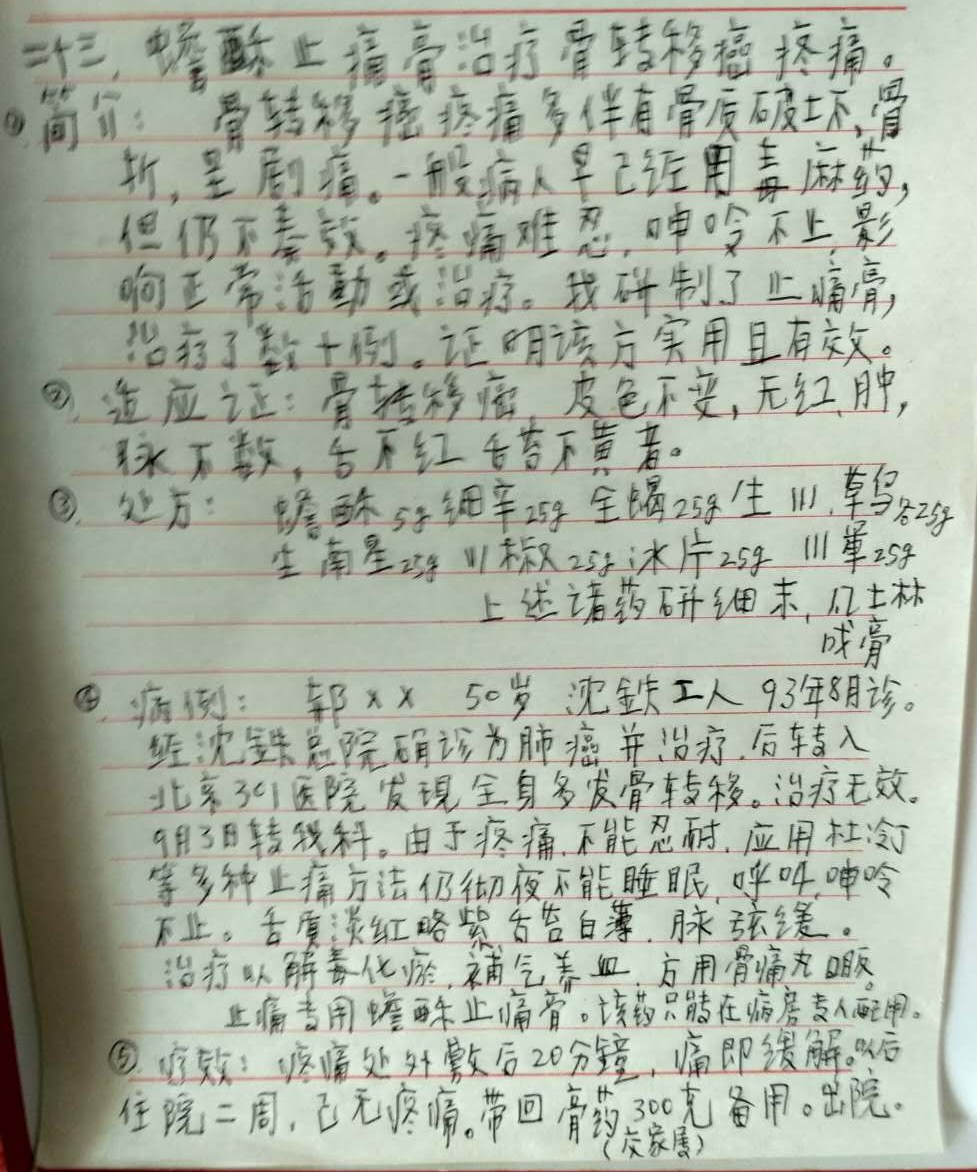 二十三、蟾酥止痛膏治疗骨转移癌疼痛。
①.简介：骨转移癌疼痛多伴有骨质破坏,骨
折,呈剧痛。一般病人早已经用毒麻药,
但仍不奏效。疼痛难忍,呻吟不止,影
响正常活動或治疗。我研制了止痛膏,
治疗了数十例。证明该方实用且有效。
②.适应证：骨转移癌,皮色不变,无红、肿,
脉不数,舌不红舌苔不黄者。
③.处方：蟾酥5g细辛25g全蝎25g生川、草乌各25g
生南星25g川椒25g冰片25g川軍25g
上述诸药研细末,凡士林
成膏
④.病例：郭××50岁沈鉄工人93年8月诊。
经沈鉄总院确诊为肺癌并治疗.后转入
北京301医院发現全身多发骨转移。治疗无效。
9月3日转我科。由于疼痛,不能忍耐,应用杜冷丁
等多种止痛方法仍彻夜不能睡眠,呼叫,呻吟
不止。舌質淡红略紫舌苔白薄.脉弦缓。
治疗以解毒化瘀,補气养血,方用骨痛丸口服。
止痛专用蟾酥止痛膏。该药只能在病房专人配用。
⑤.疗效：疼痛处外敷后20分鐘,痛即缓解。以后
住院二周,已无疼痛。带回膏药300克备用。出院。
(交家属)